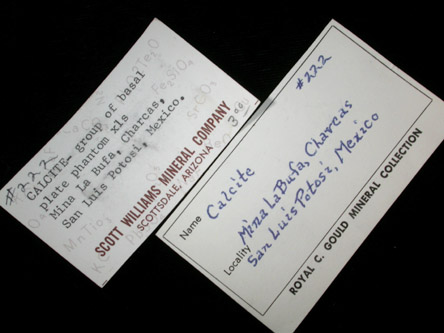 #222
CALCITE- group of basal
plate phantom xls
Mina La Bufa, Charcas,
San Luis Potosi, Mexico.
SCOTT WILLIAMS MINERAL COMPANY
SCOTTSDALE, ARIZONA
#222
Name Calcite
Locality Mina La Bufa, Charcas
San Luis Potosi, Mexico
ROYAL C. GOULD MINERAL COLLECTION